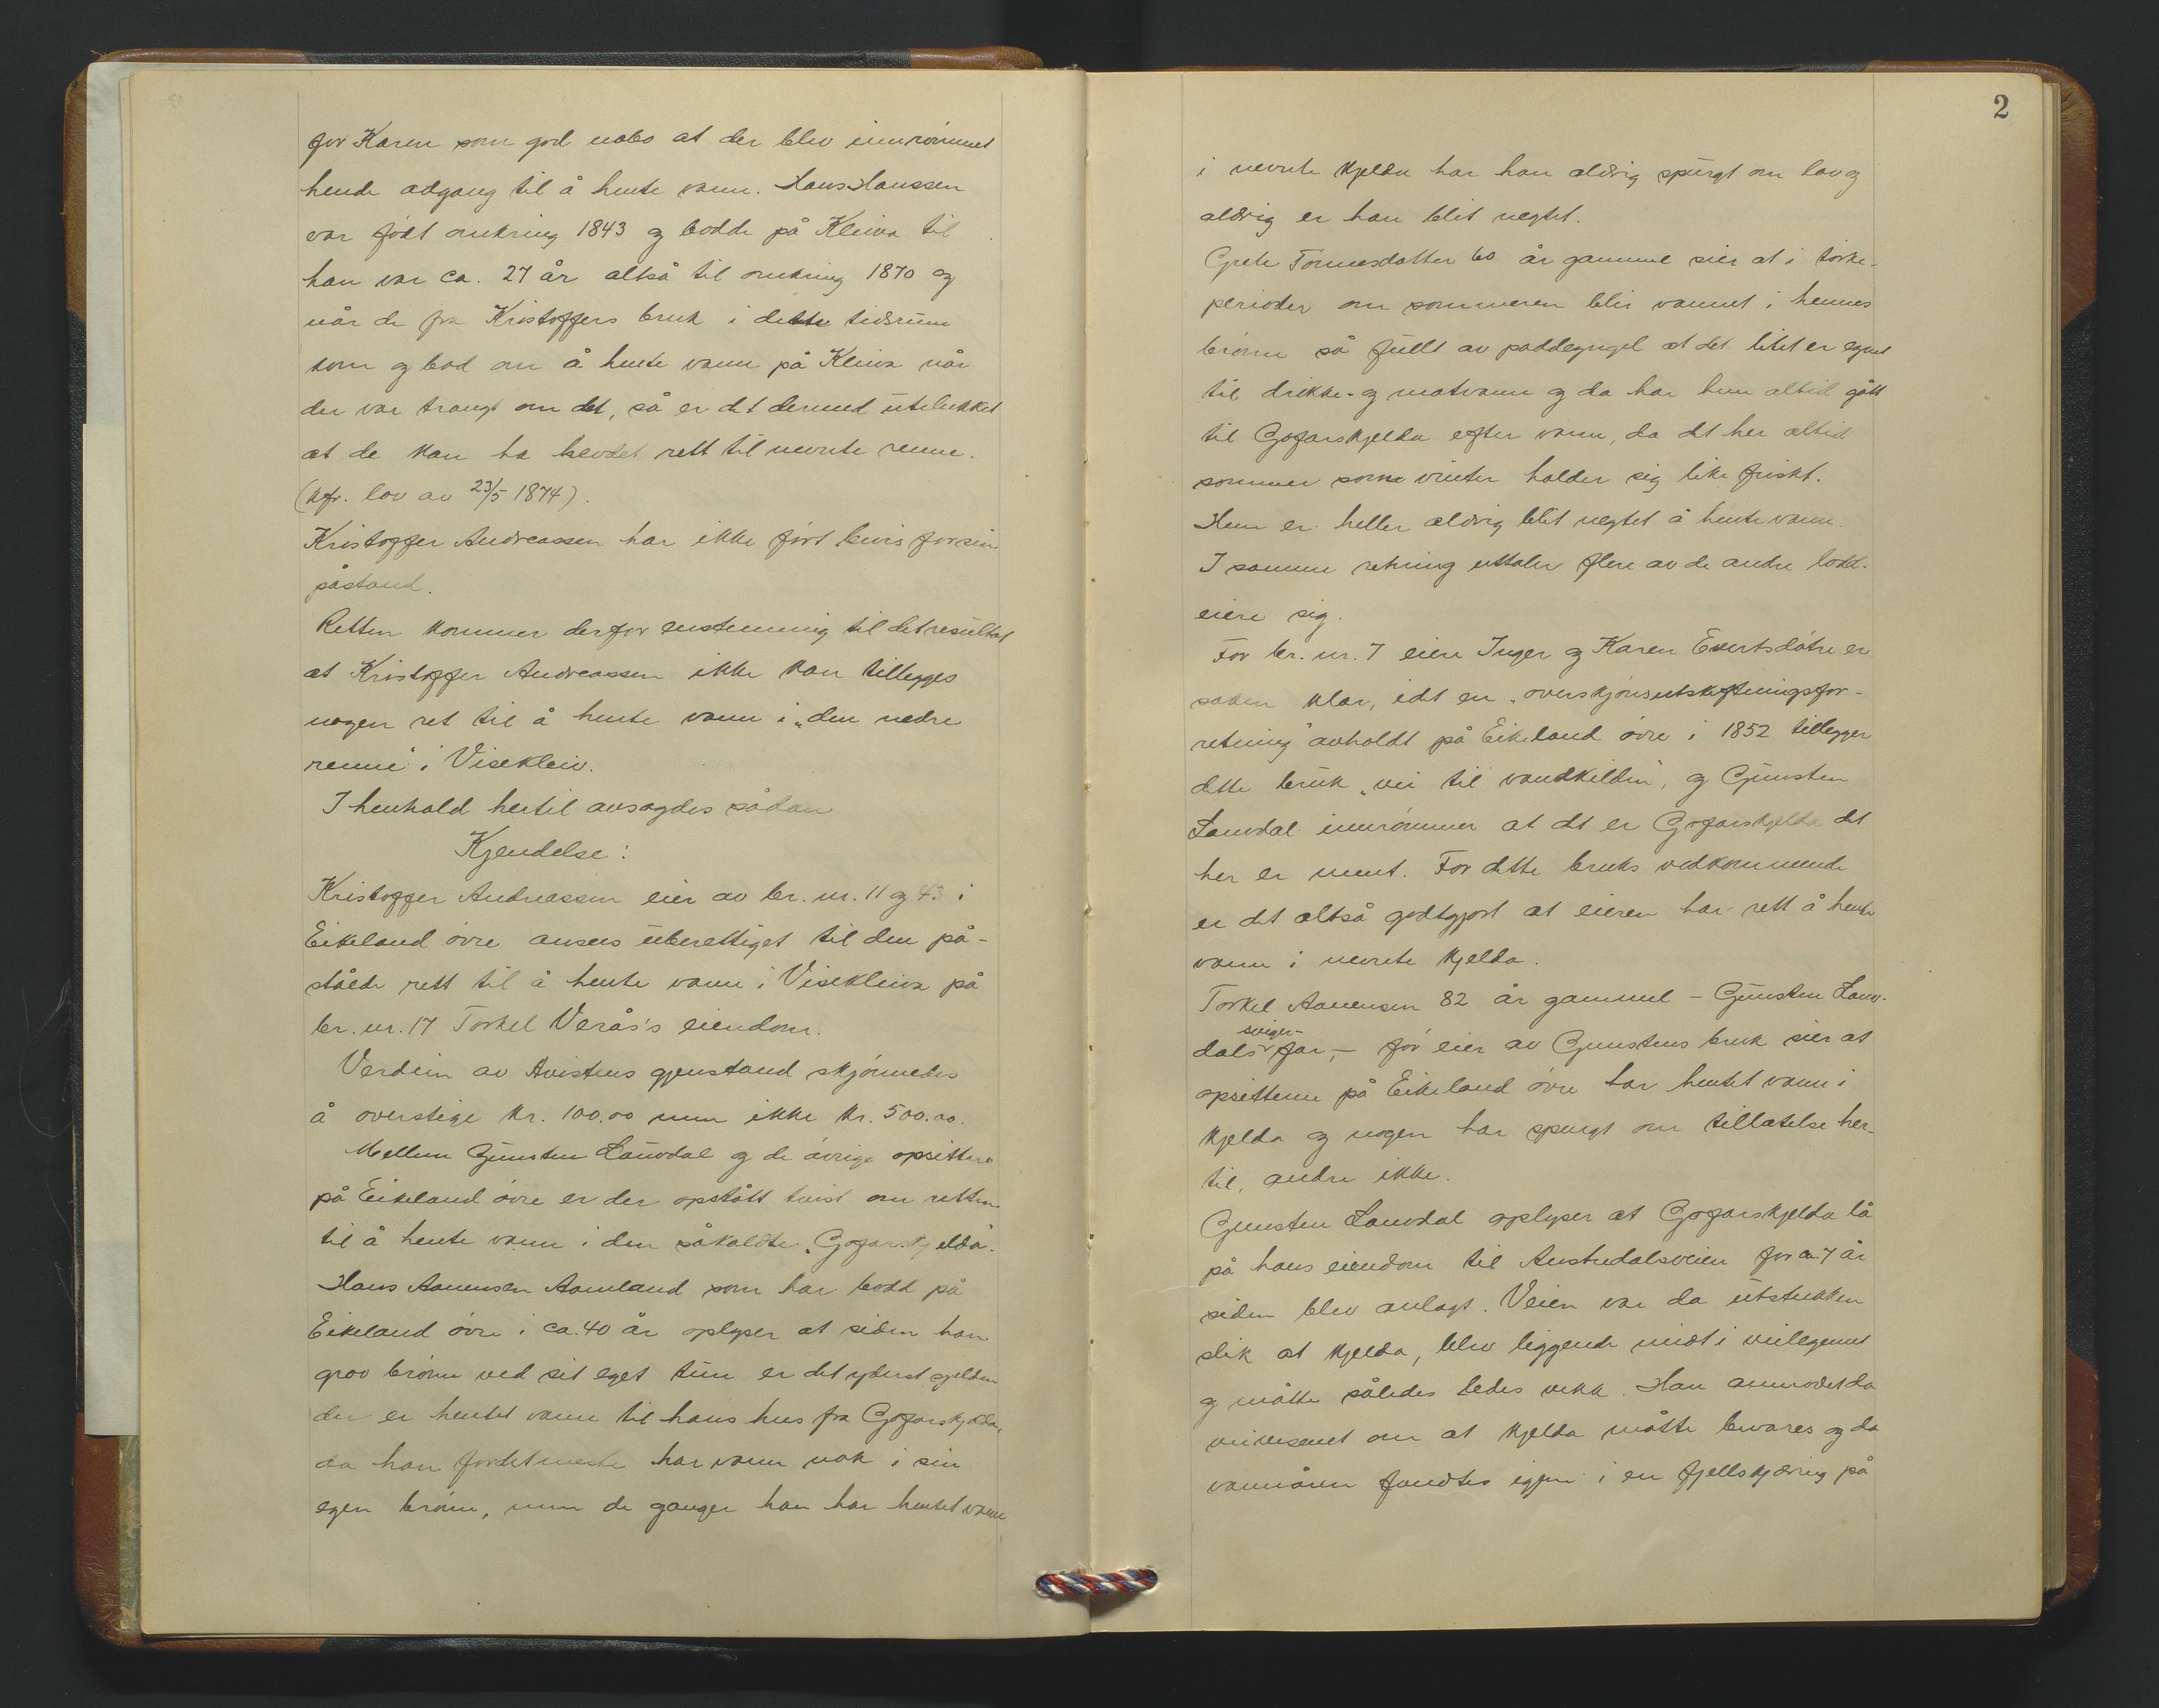 for Karen som god nabo at der blev innrömmet
hende adgang til å hente vann. Hans Hanssen
var födt omkring 1843 og bodde på Kleiva til
han var ca. 27 år altså til omkring 1870 og
når de fra Kristoffers bruk i dette tidsrum
kom og bad om å hente vann på Kleiva når
der var trangt om det, så er det dermed utelukket
at de kan ha hevdet rett til nevnte renne.
(kfr. lov av 23/5 1874).
Kristoffer Andreassen har ikke fört bevis for sin
påstand.
Retten kommer derfor enstemmig til det resultat
at Kristoffer Andreassen ikke kan tillegges
nogen ret til å hente vann i „den nedre
renne" i Visekleiv.
I henhold hertil avsagdes sådan
Kjendelse:
Kristoffer Andreassen eier av br. nr. 11 og 43 i
Eikeland övre ansees uberettiget til den på-
ståede rett til å hente vann i Visekleiva på
br. nr. 17 Torkel Verås's eiendom.
Verdien av tvistens gjenstand skjönnedes
å overstige kr. 100.00 men ikke kr. 500.00.
Mellem Gunsten Lauvdal og de övrige opsittere
på Eikeland övre er der opstått tvist om retten
til å hente vann i den såkaldte „Gofarskjelda".
Hans Aanensen Aamland som har bodd på
Eikeland övre i ca. 40 år oplyser at siden han
grov brönn ved sit eget tun er det yderst sjelden
der er hentet vann til hans hus fra Gofarskjelda,
da han fordetmeste har vann nok i sin
egen brönn, men de ganger han har hentet vann
2
i nevnte kjelda har han aldrig spurgt om lov og
aldrig er han blit negtet.
Grete Tönnesdatter 60 år gammel sier at i törke-
perioder om sommeren blir vannet i hennes
brönn så fullt av paddeyngel at det litet er egnet
til drikke- og matvann og da har hun altid gått
til Gofarskjelda efter vann, da det her altid
sommer som vinter holder sig like friskt.
Hun er heller aldrig blit negtet å hente vann.
I samme retning uttaler flere av de andre lodd-
eiere sig.
For br. nr. 7 eiere Inger og Karen Evertsdötre er
saken klar, idet en „overskjönsutskiftningsfor-
retning" avholdt på Eikeland övre i 1852 tillegger
dette bruk „vei til vandkilden", og Gunsten
Lauvdal innrömmer at det er Gofarskjelda det
her er ment. For dette bruks vedkommende
er det altså godtgjort at eieren har rett å hente
vann i nevnte kjelda.
Torkel Aanensen 82 år gammel – Gunsten Lauv-
dals sviger-far, – för eier av Gunstens bruk sier at
opsitterne på Eikeland övre har hentet vann i
kjelda og nogen har spurgt om tillatelse her-
til, andre ikke.
Gunsten Lauvdal oplyser at Gofarskjelda lå
på hans eiendom til Austredalsveien for ca. 7 år
siden blev anlagt. Veien var da utstukken
slik at kjelda, blev liggende midt i veilegemet
og måtte således ledes vekk. Han anmodet da
veivesenet om at kjelda måtte bevares og da
vannåren fandtes igjen i en fjellskjæring på